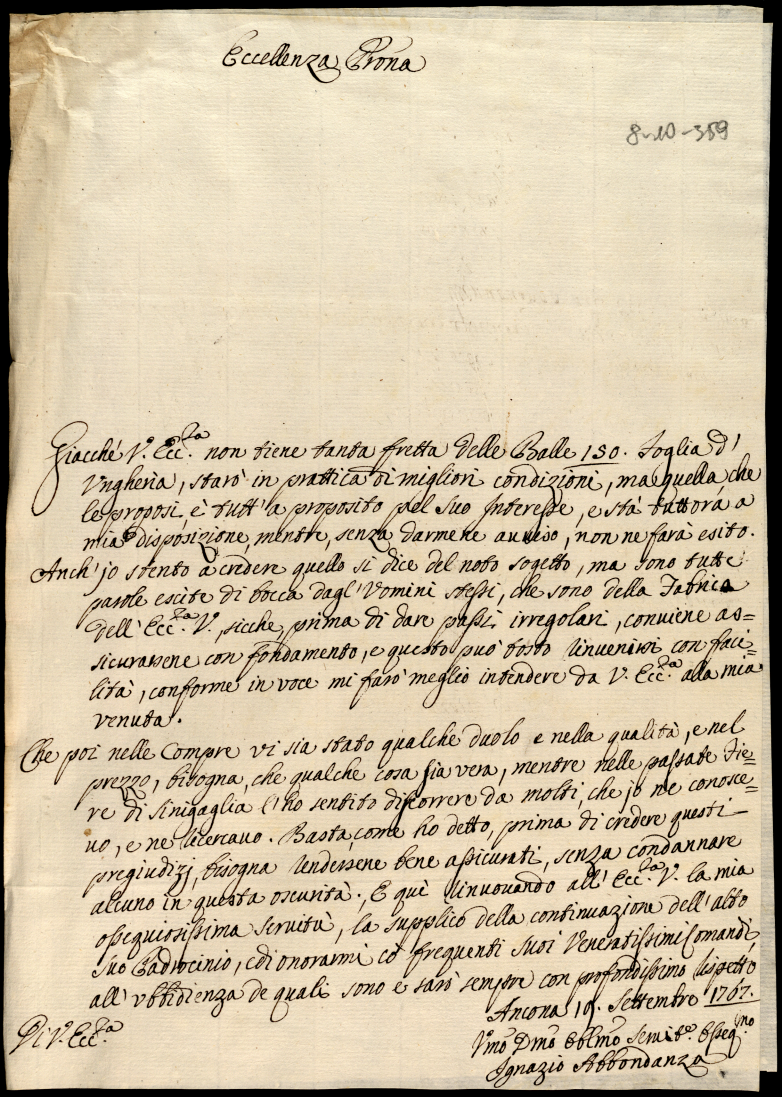 Eccellenza Prona
8-10-359
Giacché V. Ecc.za non tiene tanta fretta delle Balle 150. Foglia d'
Ungheria, starò in prattica di migliori condizioni, ma quella che
le proposi, è tutt'a proposito pel suo Interesse, e stà tuttora a
mia disposizione, mentre, senza darmene avviso, non ne farà esito.
Anch'jo stento a credere quello si dice del noto sogetto, ma sono tutte
parole escite di bocca dagl'Vomini stessi, che sono della Fabrica
dell'Ecc.za V., sicche, prima di dare passi irregolari, conviene as=
sicurarsene con fondamento, e questo può tosto rinvenirsi con faci=
lità, conforme in voce mi farò meglio intendere da V. Ecc.za alla mia
venuta.
Che poi nelle Compre vi sia stato qualche duolo e nella qualità, e nel
prezzo, bisogna, che qualche cosa sia vera, mentre nelle passate Fie=
re di Sinigaglia l'ho sentito discorrere da molti, che jo ne conosce=
vo, e ne ricercavo. Basta, come ho detto, prima di credere questi
pregiudizj, bisogna rendersene bene assicurati, senza condannare
alcuno in questa oscurità. E quì rinuovando all'Ecc.za V. la mia
ossequiosissima servitù, la supplico della continuazione dell'alto
suo Padrocinio, e di onorarmi co' frequenti suoi Veneratissimi Comandi,
all'vbbidienza de quali sono e sarò sempre con profondissimo rispetto
Ancona 19. Settembre 1767.
Di V. Ecc.za
Vmo Dmo Obblmo Servit.e Osseq.mo
Ignazio Abbondanza